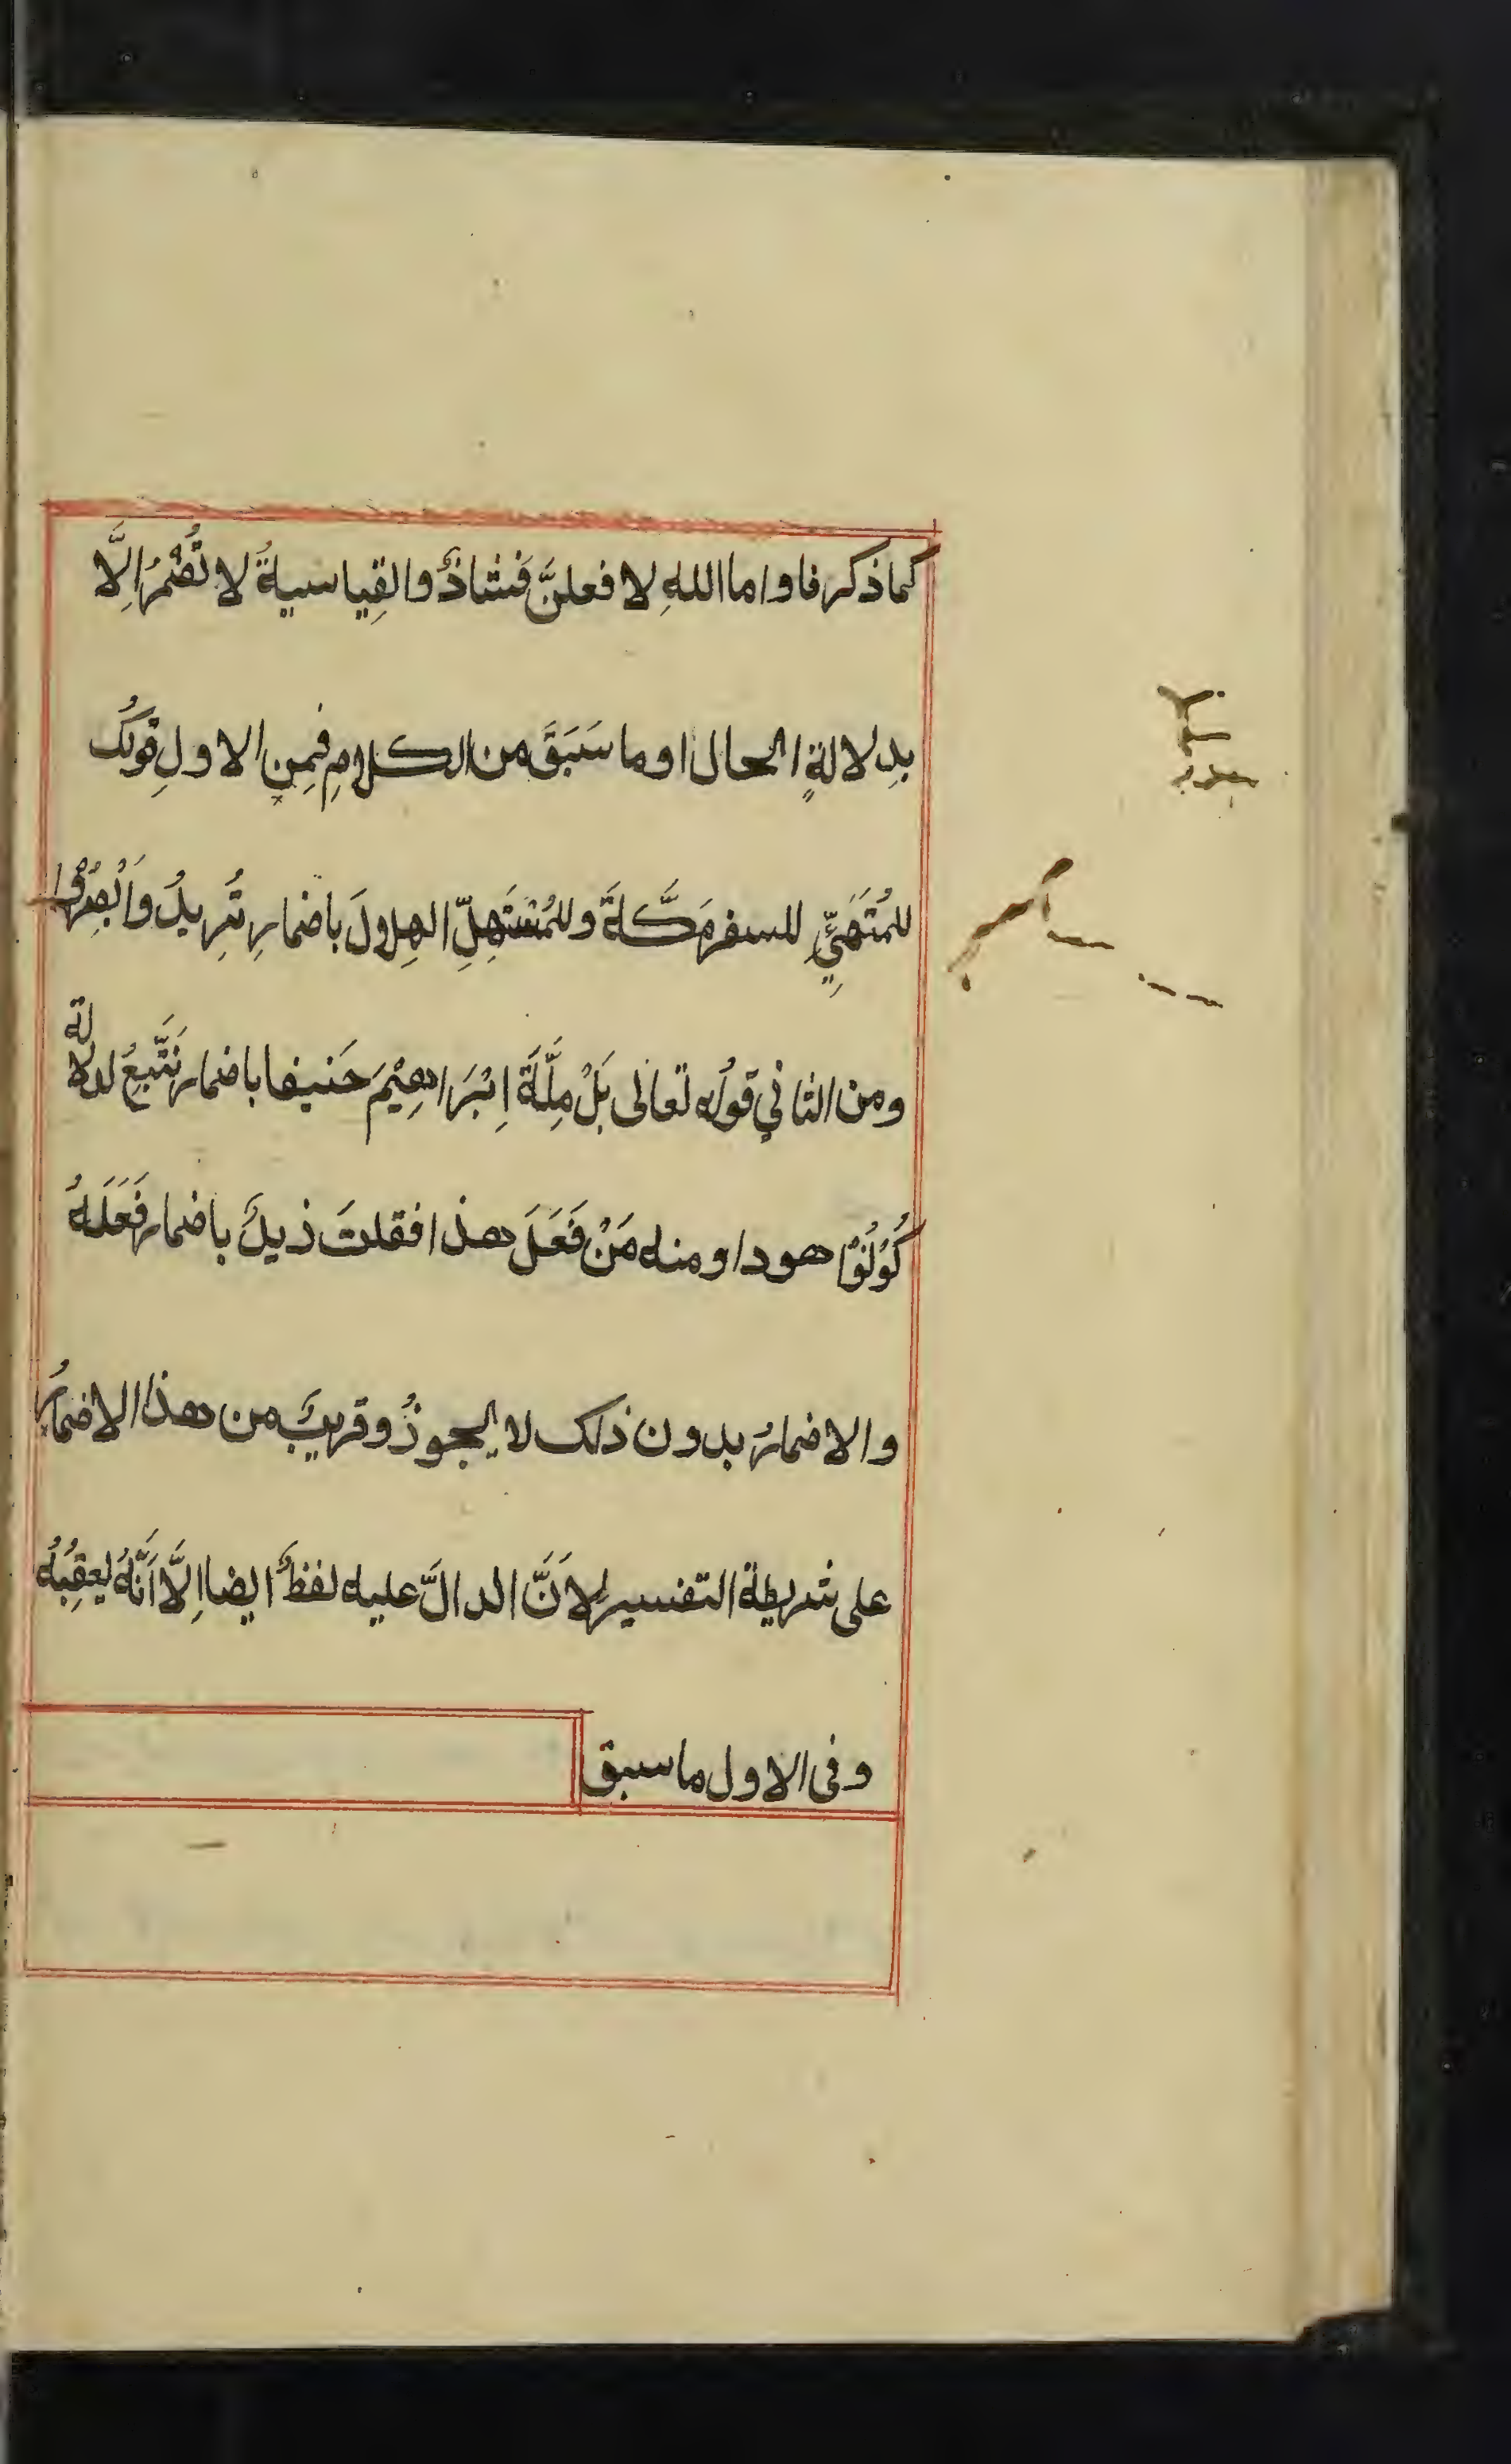 كما ذكرنا واما اللهِ لافعلنَّ فشاذٌ والقِياسيةُ لا تُضْمَرُ اِلَّا
بدِلالةِ الحال او ما سَبَقَ من الكلامِ فمِن الاولِ قولُكَ
للمُتَهَيِّئِ للسفر مَكَّةَ وللمُسْتَهِلِّ الهِلالَ باضمارِ تُرِيدُ وَاَبْصَرُوا
ومن الثاني قولُه تعالى بَلْ مِلَّةَ اِبْرَاهِيْمَ حَنيفا باضمار نَتَّبِعُ لدلالة
كُوْنُوْا هودا ومنه مَنْ فَعَلَ هذا فقلتَ زيدٌ باضمار فَعَلَهُ
والاضمارُ بدون ذلك لا يجوزُ وقريبٌ من هذا الاضمارُ
على شريطة التفسير لِاَنَّ الدالَّ عليه لفظٌ ايضا اِلَّا اَنَّهُ يعقِبُهُ
وفى الاول ما سبق